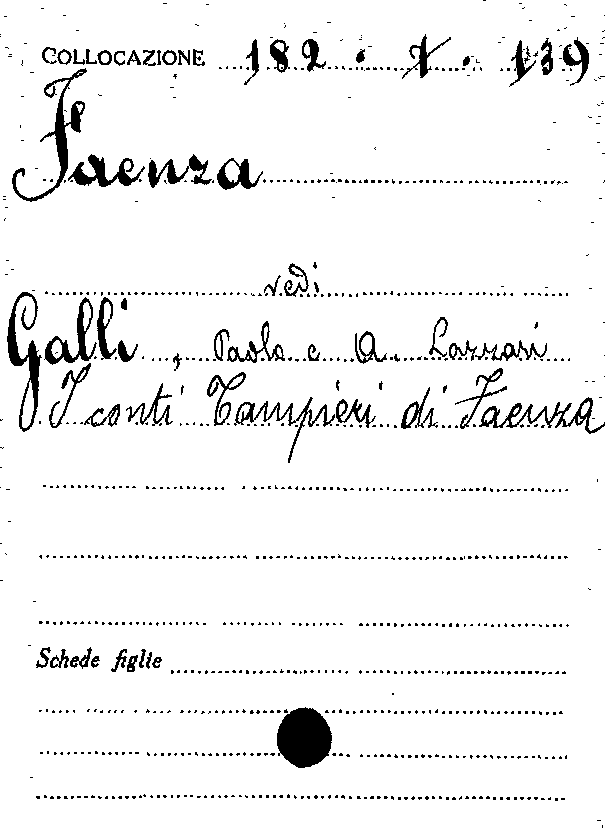 COLLOCAZIONE 182 . 1 . 139
Faenza
vedi
Galli, Paolo e A. Lazzari
I conti Tampieri di Faenza
Schede figlie